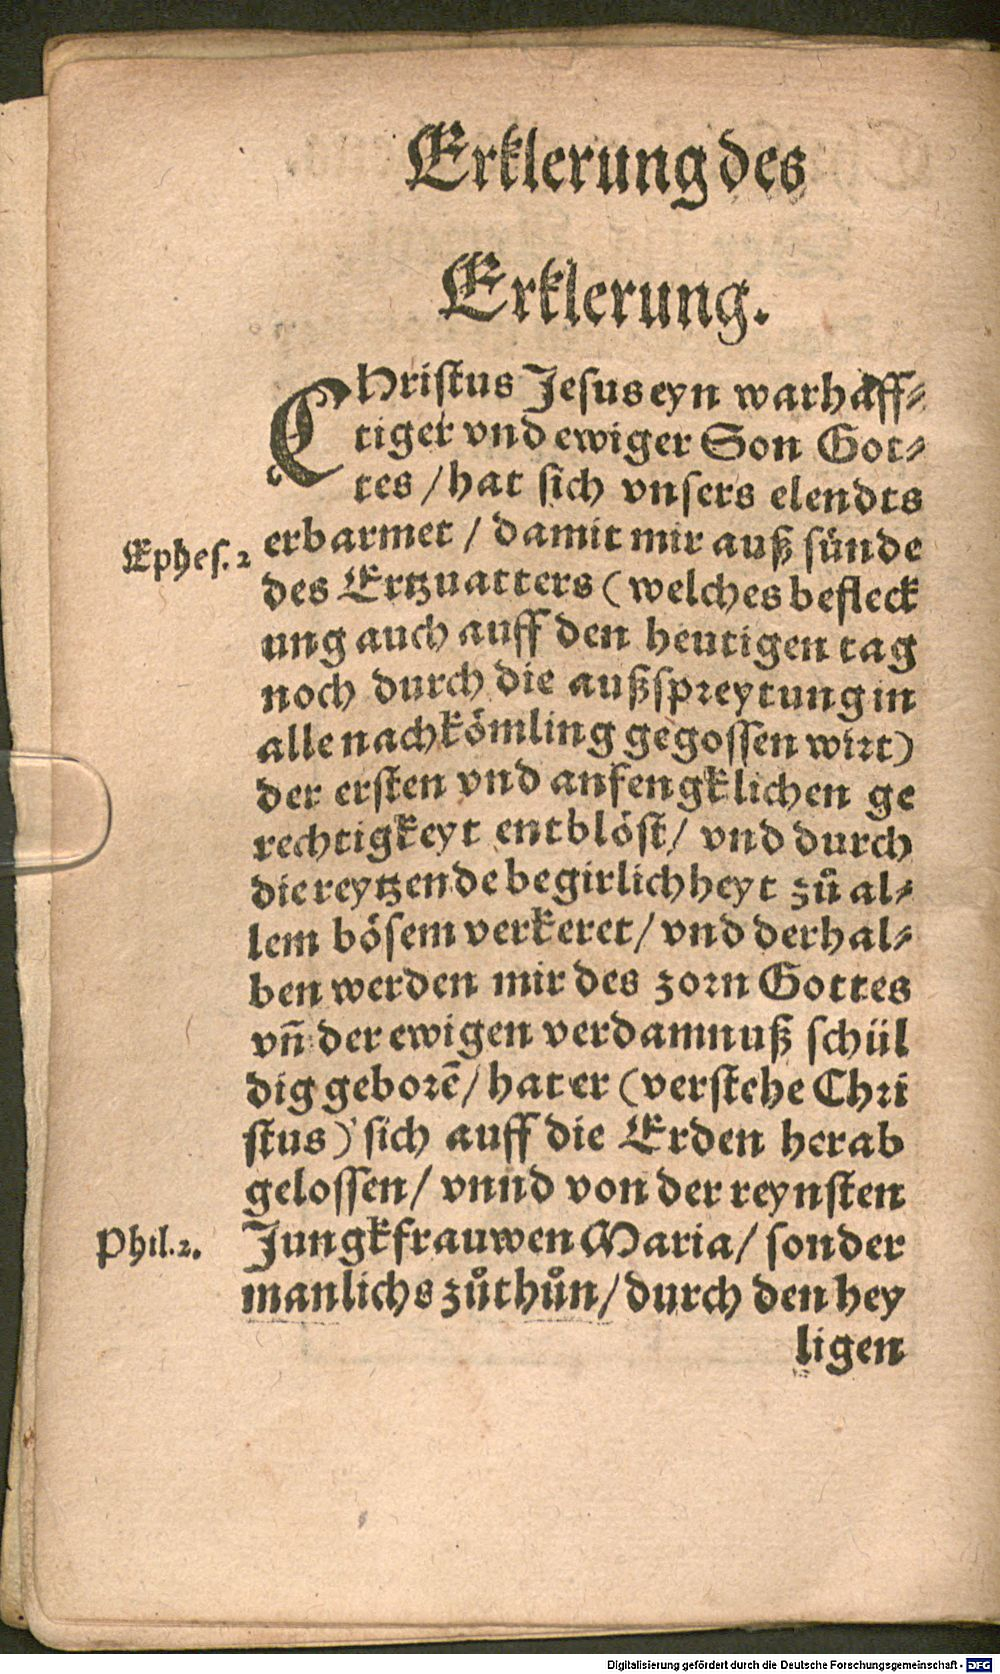 Erklerung des
Erklerung.
CHristus Jesus eyn warhaff⸗
tiger vnd ewiger Son Got⸗
tes / hat sich vnsers elendts
Ephes. 2 erbarmet / damit mir auß sünde
des Ertzuatters (welches befleck
ung auch auff den heutigen tag
noch durch die außspreytung in
alle nachkömling gegossen wirt)
der ersten vnd anfengklichen ge
rechtigkeyt entblöst / vnd durch
die reytzende begirlichheyt zů al⸗
lem bösem verkeret / vnd derhal⸗
ben werden mir des zorn Gottes
vñ der ewigen verdamnuß schül
dig geborẽ / hat er (verstehe Chri
stus) sich auff die Erden herab
gelossen / vnnd von der reynsten
Phil. 2. Jungkfrauwen Maria / sonder
manlichs zůthůn / durch den hey
ligen
Digitalisierung gefördert durch die Deutsche Forschungsgemeinschaft - DFG